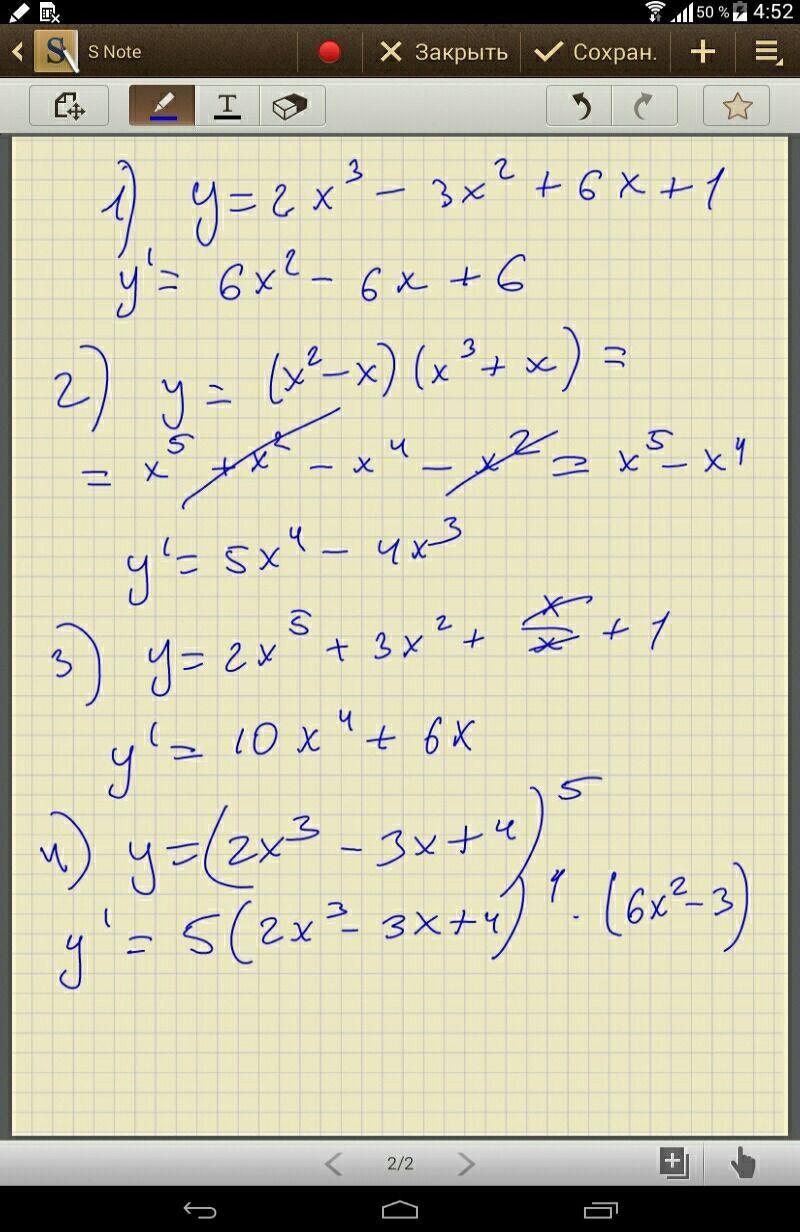 50 % 4:52
S Note Закрыть Сохран.
T
1) y = 2x³ - 3x² + 6x + 1
y' = 6x² - 6x + 6
2) y = (x² - x)(x³ + x) =
= x⁵ + x² - x⁴ - x² = x⁵ - x⁴
y' = 5x⁴ - 4x³
3) y = 2x⁵ + 3x² + x/x + 1
y' = 10x⁴ + 6x
4) y = (2x³ - 3x + 4)⁵
y' = 5(2x³ - 3x + 4)⁴ · (6x² - 3)
2/2